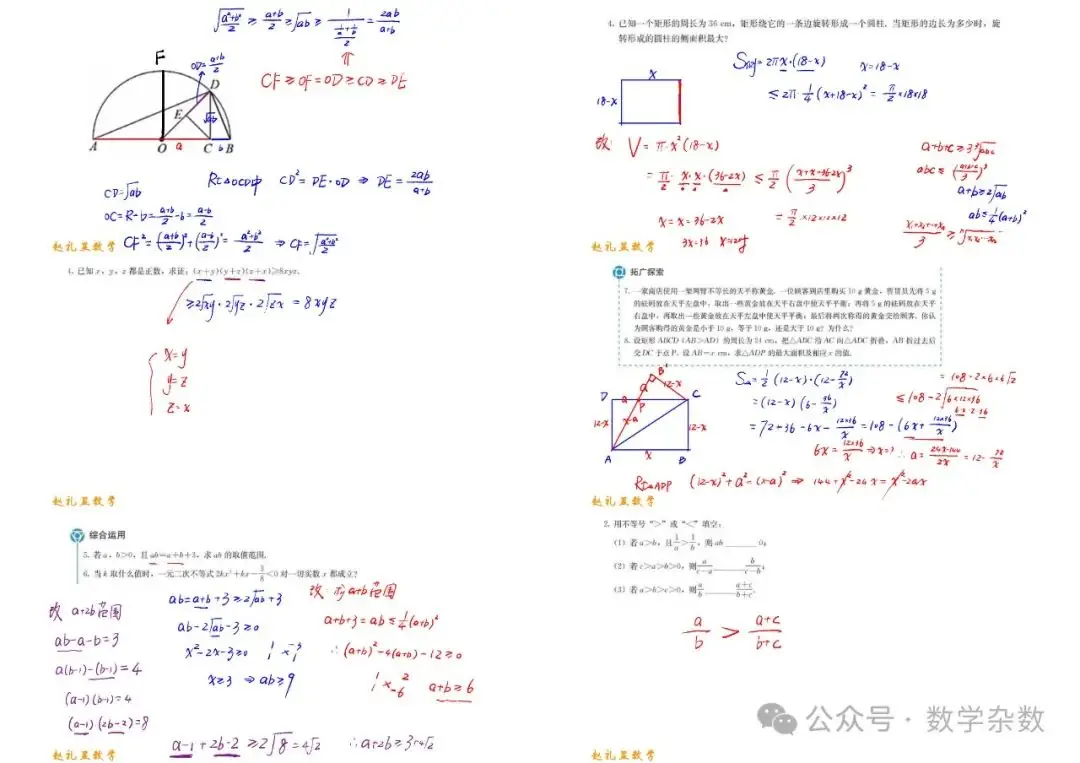 √((a²+b²)/2) ≥ (a+b)/2 ≥ √ab ≥ 1/((1/a+1/b)/2) = 2ab/(a+b)
CF≥OF=OD≥CD≥DE
F
OD=(a+b)/2
D
E
√ab
A O a C b B
CD=√ab
Rt△OCD中 CD²=DE·OD ⇒ DE=2ab/(a+b)
OC=R-b=(a+b)/2-b=(a-b)/2
CF²=((a+b)/2)²+((a-b)/2)²=(a²+b²)/2 ⇒ CF=√((a²+b²)/2)
赵礼显数学
4. 已知 x, y, z 都是正数, 求证: (x+y)(y+z)(z+x)≥8xyz.
≥2√xy·2√yz·2√zx=8xyz
x=y
y=z
z=x
赵礼显数学
综合运用
5. 若 a, b>0, 且 ab=a+b+3, 求 ab 的取值范围.
6. 当 k 取什么值时, 一元二次不等式 2kx²+kx-3/8<0 对一切实数 x 都成立?
改 a+2b范围
ab-a-b=3
a(b-1)-(b-1)=4
(a-1)(b-1)=4
(a-1)(2b-2)=8
a-1+2b-2≥2√8=4√2 ∴a+2b≥3+4√2
ab=a+b+3≥2√ab+3
ab-2√ab-3≥0
x²-2x-3≥0
x≥3 ⇒ ab≥9
改: 求a+b范围
a+b+3=ab≤1/4(a+b)²
∴(a+b)²-4(a+b)-12≥0
a+b≥6
赵礼显数学
4. 已知一个矩形的周长为 36 cm, 矩形绕它的一条边旋转形成一个圆柱. 当矩形的边长为多少时, 旋
转形成的圆柱的侧面积最大?
x
18-x
S侧=2πx·(18-x) x=18-x
≤2π·1/4(x+18-x)²=π/2×18×18
改: V=π·x²(18-x)
=π/2·x·x·(36-2x)≤π/2((x+x+36-2x)/3)³
x=x=36-2x =π/2×12×12×12
3x=36
a+b+c≥3∛abc
abc≤((a+b+c)/3)³
a+b≥2√ab
ab≤1/4(a+b)²
赵礼显数学
拓广探索
7. 一家商店使用一架两臂不等长的天平称黄金. 一位顾客到店里购买 10 g 黄金, 售货员先将 5 g
的砝码放在天平左盘中, 取出一些黄金放在天平右盘中使天平平衡; 再将 5 g 的砝码放在天平
右盘中, 再取出一些黄金放在天平左盘中使天平平衡; 最后将两次称得的黄金交给顾客. 你认
为顾客购得的黄金是小于 10 g, 等于 10 g, 还是大于 10 g? 为什么?
8. 设矩形 ABCD (AB>AD) 的周长为 24 cm, 把△ABC 沿 AC 向△ADC 折叠, AB 折过去后
交 DC 于点 P. 设 AB=x cm, 求△ADP 的最大面积及相应 x 的值.
B'
a 12-x
D a P C
12-x x-a 12-x
A x B
S△=1/2(12-x)·(12-72/x)
=(12-x)(6-36/x)
=72+36-6x-12×36/x=108-(6x+12×36/x)
≤108-2√(6×12×36)
=108-2×6×6√2
6x=12×36/x ⇒x=? ∴a=(24x-144)/2x=12-72/x
Rt△ADP (12-x)²+a²=(x-a)² ⇒ 144+x²-24x=x²-2ax
赵礼显数学
2. 用不等号“>”或“<”填空:
(1) 若 a>b, 且1/a>1/b, 则 ab ______ 0;
(2) 若 c>a>b>0, 则a/(c-a) ______ b/(c-b);
(3) 若 a>b>c>0, 则a/b ______ (a+c)/(b+c).
a/b > (a+c)/(b+c)
赵礼显数学
公众号·数学杂数